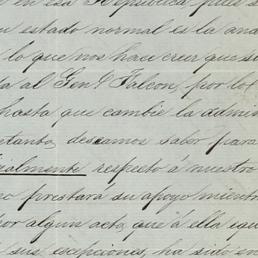 en esa República pues s
su estado normal es la ana
lo que nos hace creer que si
da al Genl Falcon, por lo
hasta que cambie la admin
tanto, deseamos saber para
nalmente respecto á nuestro
no prestará su apoyo mientr
por algun acto, que á ella igu
sus escepciones, ha sido in